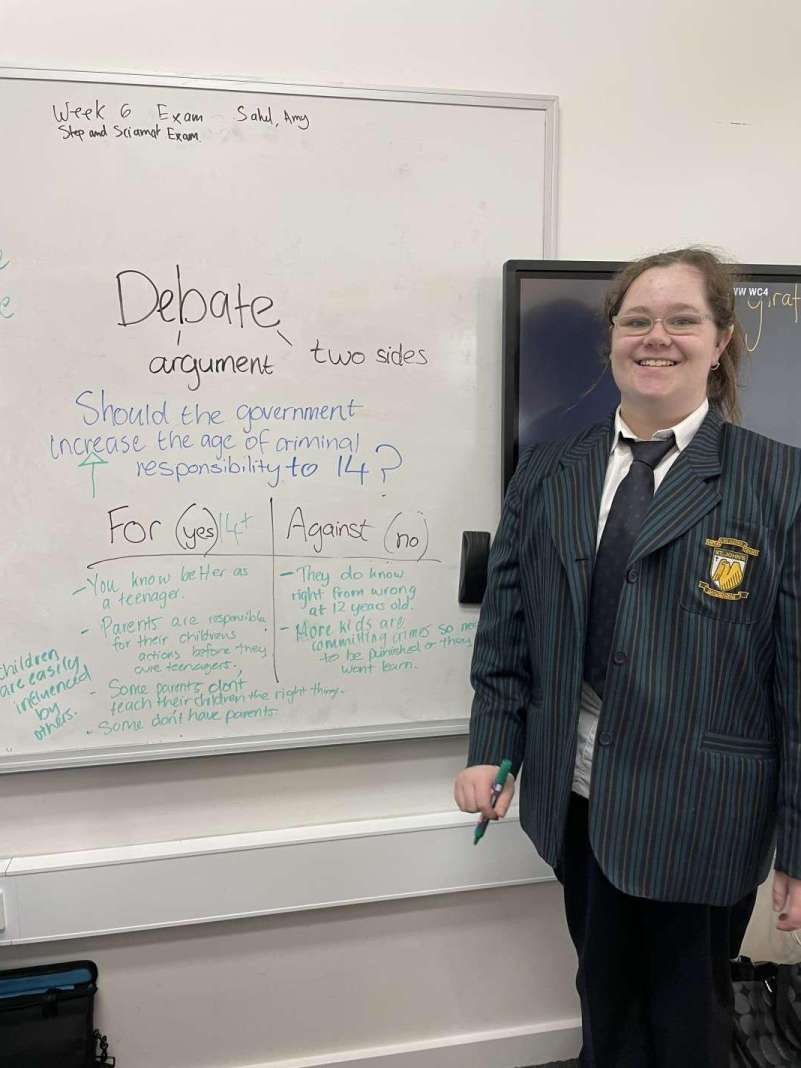 Week 6 Exam - Sahil, Amy
Step and Exam.
Debate
argument
two sides
Should the government
increase the age of criminal
responsibility to 14?
For (yes) 14+
Against (no)
- You know better as
a teenager.
- Parents are responsible
for their childrens
actions before they
are teenagers.
- Some parents dont
teach their children the right thing.
- Some don't have parents.
Children
are easily
influenced
by
others.
- They do know
right from wrong
at 12 years old.
- More kids are
committing crimes so
to be punished or they
wont learn.
WW WC4
ST. JOHN'S